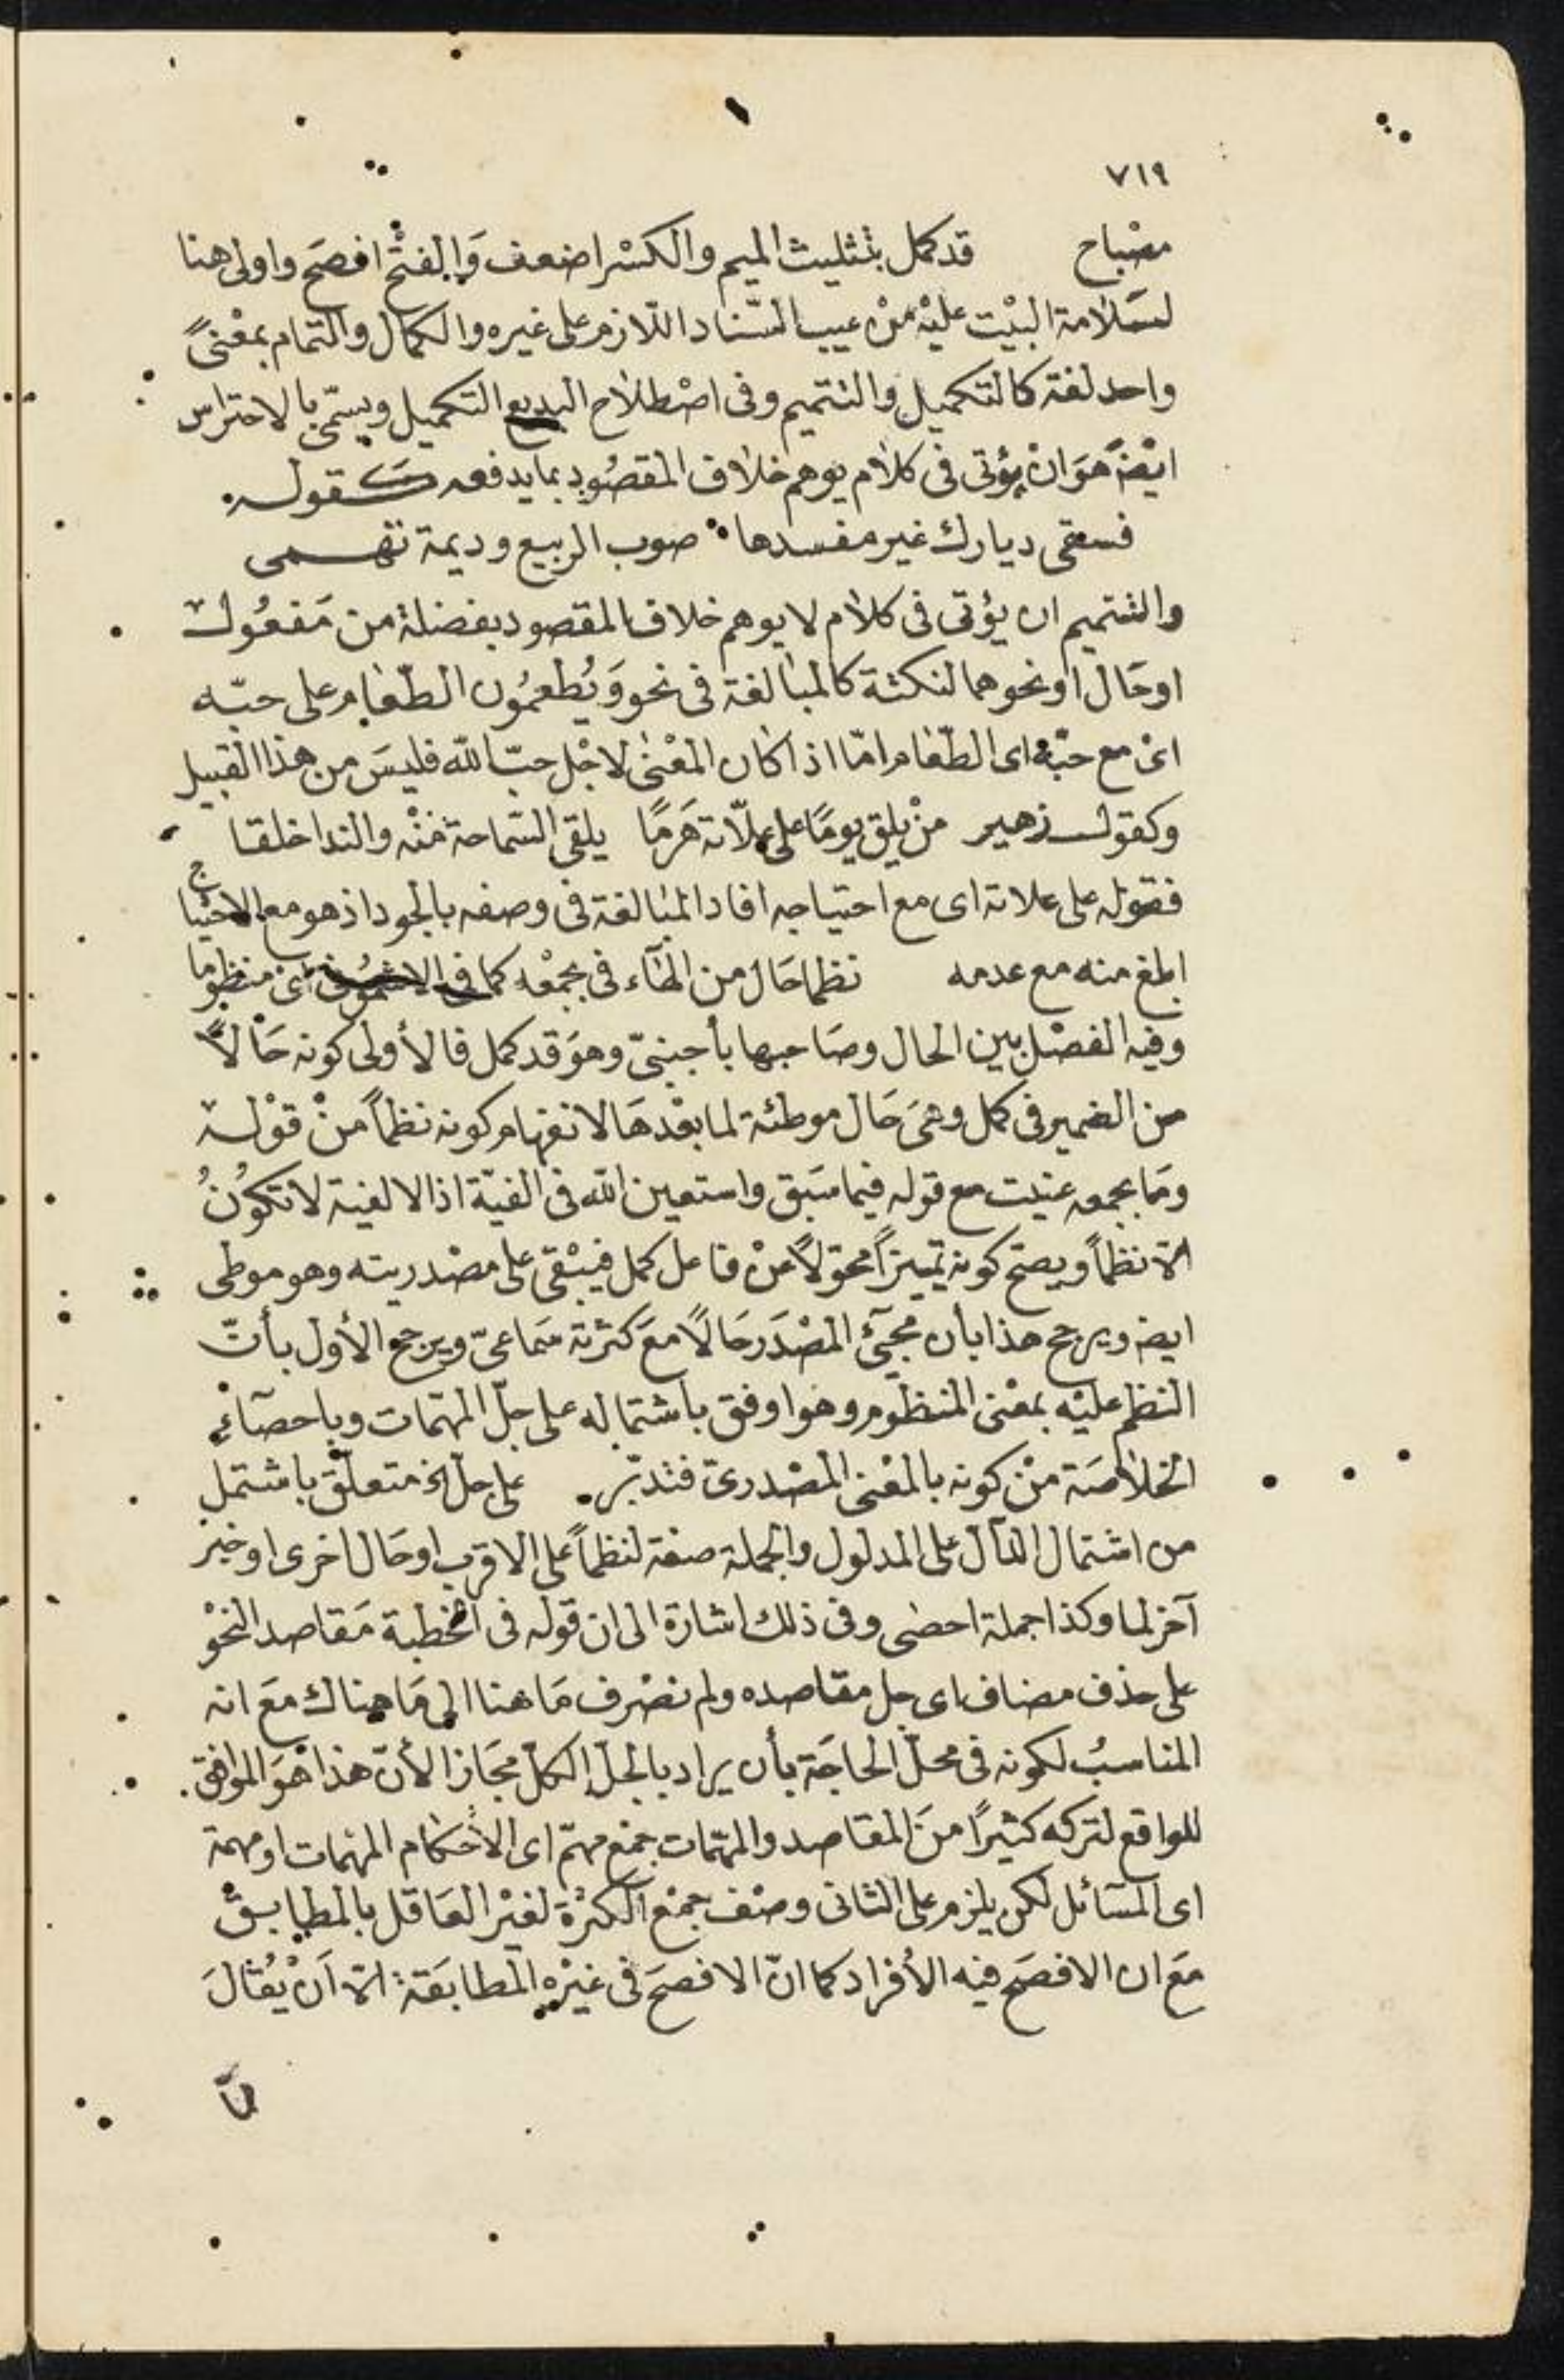 ٧١٩
مصْباح قد كمل بتثليث الميم والكسْر اضعف وَالفتْح افصَح واولى هنا
لسَلامة البيْت عليْه منْ عيب السّناد اللّازم على غيره والكمال والتمام بمعْنىً
واحد لغة كالتكميل والتتميم وفى اصْطلاح البديع التكميل ويسمّى بالاحتراس
ايضً هوَ انْ يؤتى فى كلام يوهم خلاف المقصُود بما يدفعه كقوله
فسقى ديارك غير مفسدها صوب الربيع وديمة تهمى
والتتميم ان يؤتى فى كلام لا يوهم خلاف المقصود بفضلة من مَفعُول
اوحَال او نحوهما لنكتة كالمبالغة فى نحو وَيُطعمُون الطّعام على حبّه
اىْ مع حبّه اى الطّعام امّا اذا كان المعْنىٰ لاجْل حبّ الله فليسَ من هذا القبيل
وكقول زهير منْ يلق يومًا على علّاته هَرمًا يلقى السّماحة منْه والندا خلقا
فقوله على علاته اى مع احتياجه افاد المبالغة فى وصفه بالجود اذ هو مع الاحتياج
ابلغ منه مع عدمه نظما حَال من الهَاء فى بجمْعه كما فى الاشمُونى اىْ منظوما
وفيه الفصْل بين الحال وصَاحبها بأجنبىّ وهوَ قد كمل فالأولى كونه حَالاً
من الضمير فى كمل وهىَ حَال موطئة لما بعْدهَا لانفهام كونه نظماً منْ قوْله
ومَا بجمعه عنيت مع قوله فيما سَبق واستعين الله فى الفيّة اذ الالفية لا تكوُنُ
الّا نظماً ويصحّ كونه تمييزاً محوّلاً عنْ فاعل كمل فيبْقى على مصْدريته وهو موطى
ايضً ويرجح هذا بأن مجئَ المصْدَر حَالاً معَ كثرته سَماعىّ ويرجح الأول بأنّ
النظم عليْه بمعْنى المنظوم وهوَ اوفق باشتماله على جلّ المهمّات وباحصآءِ
الخلاصَة منْ كونه بالمعْنى المصْدرىّ فتدبّر. على جلّ الخ متعلّق باشتمل
من اشتمال الدّال على المدلول والجملة صفة لنظماً على الاقرب او حَال اخرى او خبر
آخر لما وكذا جملة احصٰى وفى ذلك اشارة الى ان قوله فى الخطبة مَقاصد النحْو
على حذف مضاف اى جل مقاصده ولم نصْرف مَا هنا الى مَا هناك معَ انه
المناسبُ لكونه فى محلّ الحاجَة بأن يراد بالجلّ الكلّ مجَازا لأنّ هذا هوَ الموافق
للواقع لتركه كثيرًا منَ المقاصد والمهمّات جمْع مهمّ اى الاحكام المهمات او مهمة
اى المسَائل لكن يلزم على الثانى وصْف جمْع الكثرة لغيْر العَاقل بالمطابق
معَ ان الافصَح فيه الأفراد كما انّ الافصَح فى غيْره المطابَقة الّا اَنْ يُقالَ
لمّا